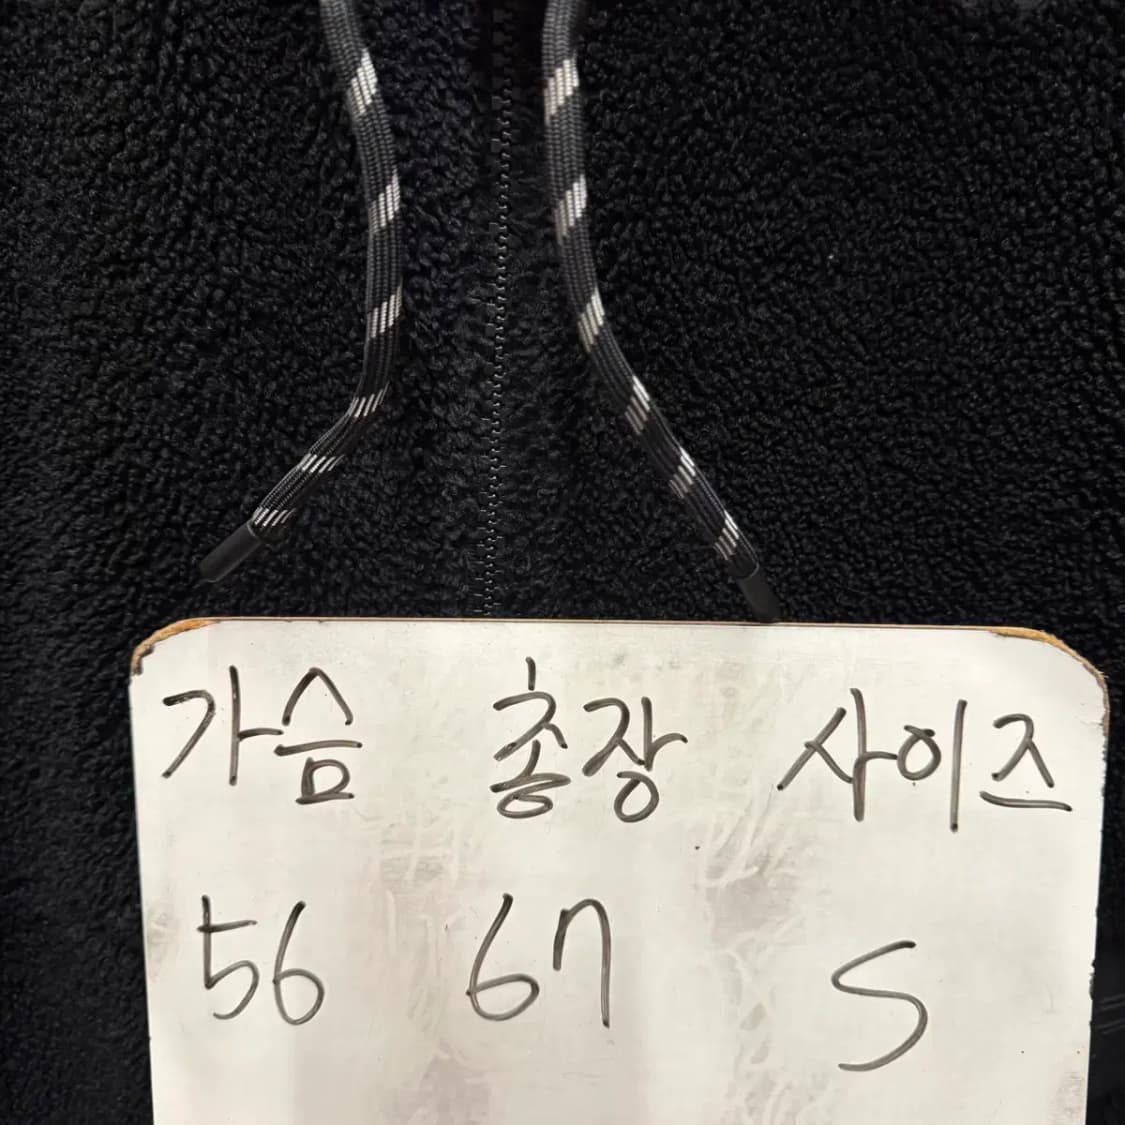 가슴 총장 사이즈
56 67 S